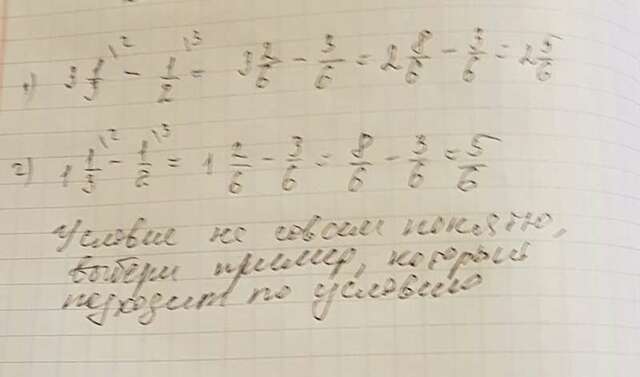 1) 3 1/3 \2 - 1/2 \3 = 3 2/6 - 3/6 = 2 8/6 - 3/6 = 2 5/6
2) 1 1/3 \2 - 1/2 \3 = 1 2/6 - 3/6 = 8/6 - 3/6 = 5/6
Условие не совсем понятно,
выбери пример, который
подходит по условию